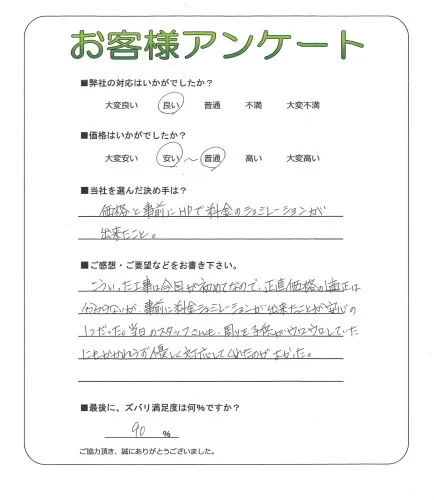 お客様アンケート
■弊社の対応はいかがでしたか？
大変良い 良い 普通 不満 大変不満
■価格はいかがでしたか？
大変安い 安い ～ 普通 高い 大変高い
■当社を選んだ決め手は？
価格と事前にHPで料金のシュミレーションが
出来たこと。
■ご感想・ご要望などをお書き下さい。
こういった工事は今回が初めてなので、正直価格の適正は
分からないが、事前に料金シュミレーションが出来たことが安心の
1つだった。当日のスタッフさんも、周りを子供がウロウロしていた
にもかかわらず優しく対応してくれたのがよかった。
■最後に、ズバリ満足度は何％ですか？
90 ％
ご協力頂き、誠にありがとうございました。